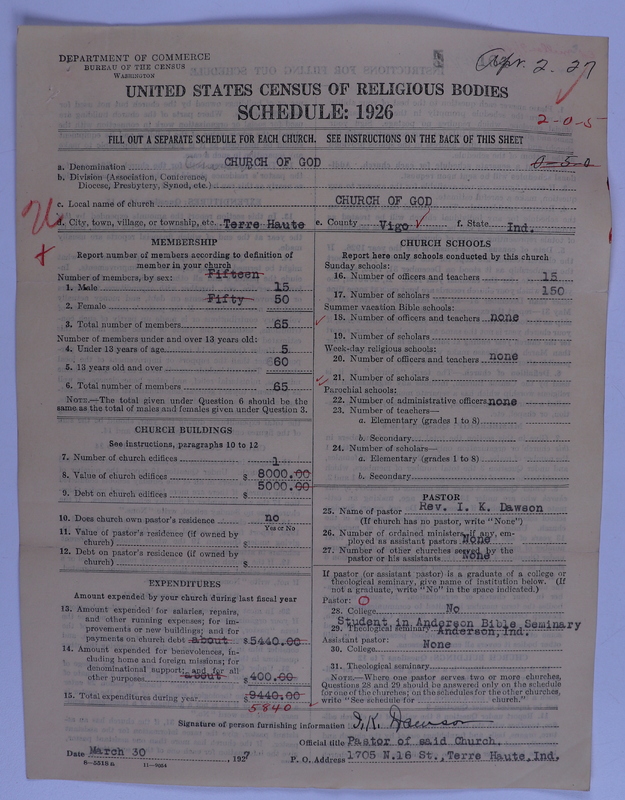 DEPARTMENT OF COMMERCE
BUREAU OF THE CENSUS
WASHINGTON
Apr. 2. 27
UNITED STATES CENSUS OF RELIGIOUS BODIES
SCHEDULE: 1926
2-0-5
FILL OUT A SEPARATE SCHEDULE FOR EACH CHURCH. SEE INSTRUCTIONS ON THE BACK OF THIS SHEET
a. Denomination CHURCH OF GOD
b. Division (Association, Conference, Diocese, Presbytery, Synod, etc.)
c. Local name of church CHURCH OF GOD
d. City, town, village, or township, etc. Terre Haute e. County Vigo f. State Ind.
MEMBERSHIP
Report number of members according to definition of member in your church
Number of members, by sex: Fifteen
1. Male 15
2. Female Fifty 50
3. Total number of members 65
Number of members under and over 13 years old:
4. Under 13 years of age 5
5. 13 years old and over 60
6. Total number of members 65
NOTE.—The total given under Question 6 should be the same as the total of males and females given under Question 3.
CHURCH BUILDINGS
See instructions, paragraphs 10 to 12
7. Number of church edifices 1
8. Value of church edifices $ 8000.00
9. Debt on church edifices $ 5000.00
10. Does church own pastor's residence no
Yes or No
11. Value of pastor's residence (if owned by church) $
12. Debt on pastor's residence (if owned by church) $
EXPENDITURES
Amount expended by your church during last fiscal year
13. Amount expended for salaries, repairs, and other running expenses; for improvements or new buildings; and for payments on church debt about $5440.00
14. Amount expended for benevolences, including home and foreign missions; for denominational support; and for all other purposes about $400.00
15. Total expenditures during year $9440.00
5840
CHURCH SCHOOLS
Report here only schools conducted by this church
Sunday schools:
16. Number of officers and teachers 15
17. Number of scholars 150
Summer vacation Bible schools:
18. Number of officers and teachers none
19. Number of scholars
Week-day religious schools:
20. Number of officers and teachers none
21. Number of scholars
Parochial schools:
22. Number of administrative officers none
23. Number of teachers—
a. Elementary (grades 1 to 8)
b. Secondary
24. Number of scholars—
a. Elementary (grades 1 to 8)
b. Secondary
PASTOR
25. Name of pastor Rev. I. K. Dawson
(If church has no pastor, write "None")
26. Number of ordained ministers, if any, employed as assistant pastors None
27. Number of other churches served by the pastor or his assistants None
If pastor (or assistant pastor) is a graduate of a college or theological seminary, give name of institution below. (If not a graduate, write "No" in the space indicated.)
Pastor: O
28. College No
Student in Anderson Bible Seminary
29. Theological seminary Anderson, Ind.
Assistant pastor:
30. College None
31. Theological seminary
NOTE.—Where one pastor serves two or more churches, Questions 28 and 29 should be answered only on the schedule for one of the churches; on the schedules for the other churches, write "See schedule for church."
Signature of person furnishing information I. K. Dawson
Official title Pastor of said Church.
Date March 30, 1927 P. O. Address 1705 N.16 St., Terre Haute, Ind.